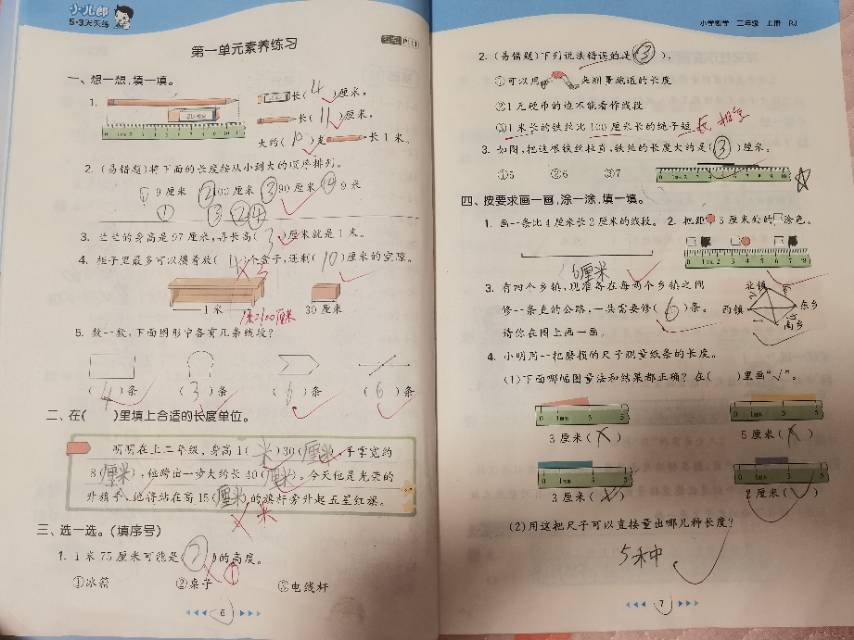 小儿郎
5·3天天练
第一单元素养练习
一、想一想,填一填。
1.
长(4)厘米。
长(11)厘米。
大约(10)支 长1米。
2.(易错题)将下面的长度按从小到大的顺序排列。
①9厘米 ②102厘米 ③90厘米 ④9米
① ③ ② ④
3. 芒芒的身高是97厘米,再长高(3)厘米就是1米。
4. 柜子里最多可以摆着放( )个盒子,还剩(10)厘米的空隙。
3
1米 30厘米
1米=100厘米
5. 数一数,下面图形中各有几条线段?
(4)条 (3)条 (6)条 (6)条
二、在( )里填上合适的长度单位。
明明在上二年级,身高1(米)30(厘米),手掌宽约
8(厘米),他跨出一步大约长40(厘米)。今天他是光荣的
升旗手,他得站在高15(厘米)的旗杆旁升起五星红旗。
米
三、选一选。(填序号)
1. 1米75厘米可能是(②)的高度。
①
①冰箱 ②桌子 ③电线杆
6
小学数学 二年级 上册 RJ
2.(易错题)下列说法错误的是(③)。
①可以用 来测量跑道的长度
②1元硬币的边不能看作线段
③1米长的铁丝比100厘米长的绳子短
相等
3. 如图,把这根铁丝拉直,铁丝的长度大约是(③)厘米。
①5 ②6 ③7
四、按要求画一画,涂一涂,填一填。
1. 画一条比4厘米长2厘米的线段。
6厘米
2. 把距 3厘米处的□涂色。
3. 有四个乡镇,现准备在每两个乡镇之间
修一条直的公路,一共需要修(6)条。
请你在图上画一画。
北镇
西镇
东乡
南乡
4. 小明用一把磨损的尺子测量纸条的长度。
(1)下面哪幅图量法和结果都正确?在( )里画“√”。
3厘米(×) 5厘米(×)
3厘米(×) 2厘米(√)
(2)用这把尺子可以直接量出哪几种长度?
5种
7